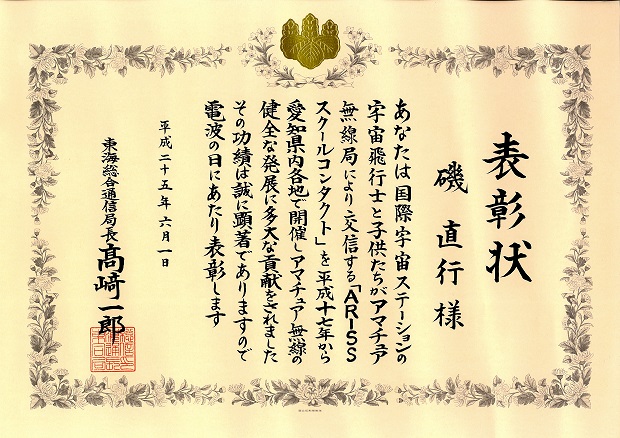 表彰状
磯 直行 様
あなたは国際宇宙ステーションの
宇宙飛行士と子供たちがアマチュア
無線局により交信する「ARISS
スクールコンタクト」を平成十七年から
愛知県内各地で開催しアマチュア無線の
健全な発展に多大な貢献をされました
その功績は誠に顕著でありますので
電波の日にあたり表彰します
平成二十五年六月一日
東海総合通信局長 髙崎一郎